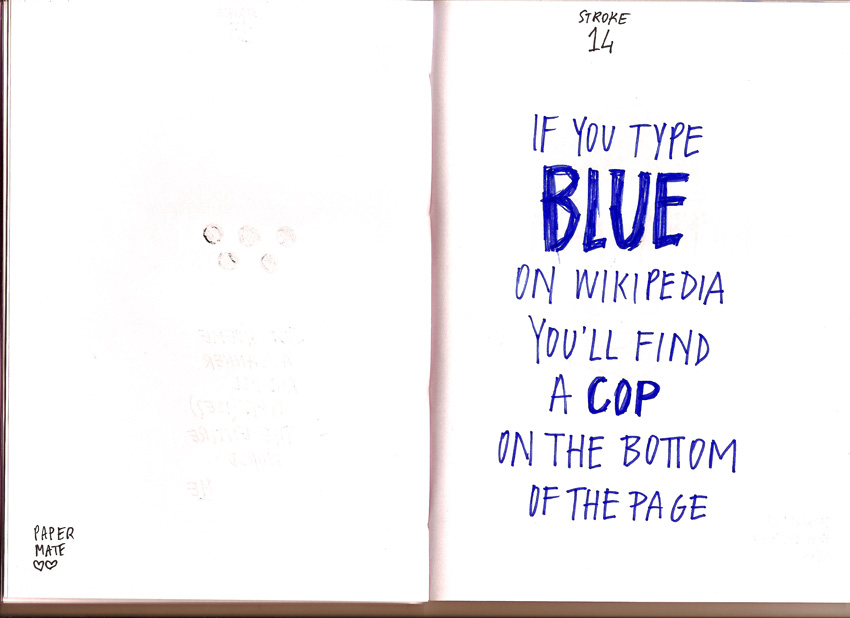 PAPER
MATE
♡♡
STROKE
14
IF YOU TYPE
BLUE
ON WIKIPEDIA
YOU'LL FIND
A COP
ON THE BOTTOM
OF THE PAGE